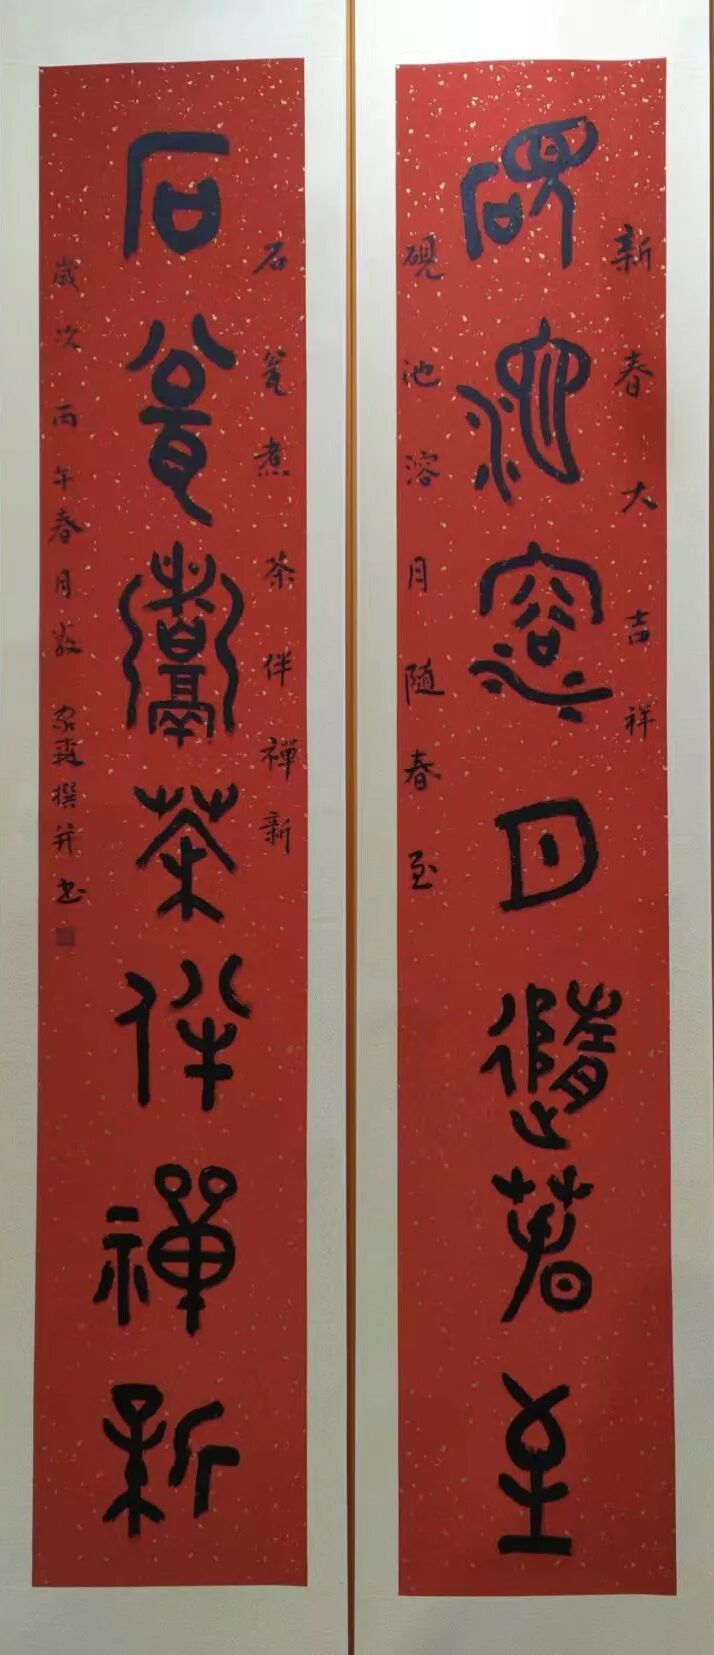 新春大吉祥
硯池溶月隨春至
硯池溶月随春至
石瓮煮茶伴禪新
石瓮煮茶伴禪新
歲次丙午春月家森撰并书